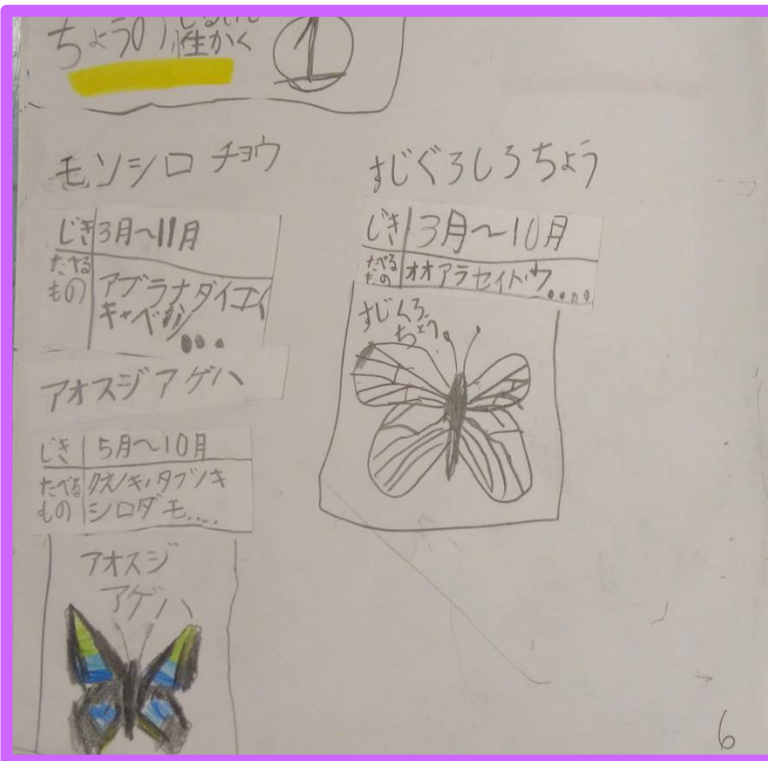 ちょうの
性かく
1
モンシロチョウ
じき 3月〜11月
たべるもの アブラナダイコン
キャベツ...
アオスジアゲハ
じき 5月〜10月
たべるもの クスノキ、タブノキ
シロダモ....
アオスジ
アゲハ
すじぐろしろちょう
じき 3月〜10月
たべるもの オオアラセイトウ....
すじぐろ
ちょう
6